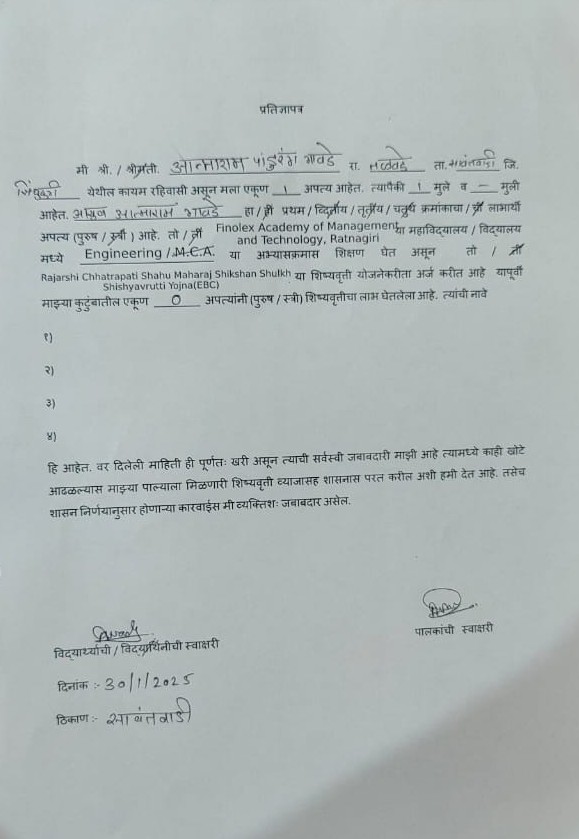 प्रतिज्ञापत्र
मी श्री. / श्रीमती. आत्माराम पांडुरंग गावडे रा. मळेवाड ता. सावंतवाडी जि.
सिंधुदुर्ग येथील कायम रहिवासी असून मला एकूण 1 अपत्य आहेत. त्यापैकी 1 मुले व – मुली
आहेत. आत्माराम गावडे हा / ती प्रथम / व्दितीय / तृतीय / चतुर्थ क्रमांकाचा / ची लाभार्थी
अपत्य (पुरुष / स्त्री ) आहे. तो / ती Finolex Academy of Management and Technology, Ratnagiri या महाविद्यालय / विद्यालय
मध्ये Engineering / M.C.A. या अभ्यासक्रमास शिक्षण घेत असून तो / ती
Rajarshi Chhatrapati Shahu Maharaj Shikshan Shulkh Shishyavrutti Yojna(EBC) या शिष्यवृत्ती योजनेकरीता अर्ज करीत आहे यापूर्वी
माझ्या कुटुंबातील एकूण 0 अपत्यांनी (पुरुष / स्त्री) शिष्यवृत्तीचा लाभ घेतलेला आहे. त्यांची नावे
१)
२)
३)
४)
हि आहेत. वर दिलेली माहिती ही पूर्णतः खरी असून त्याची सर्वस्वी जबाबदारी माझी आहे त्यामध्ये काही खोटे
आढळल्यास माझ्या पाल्याला मिळणारी शिष्यवृत्ती व्याजासह शासनास परत करील अशी हमी देत आहे. तसेच
शासन निर्णयानुसार होणाऱ्या कारवाईस मी व्यक्तिशः जबाबदार असेल.
विद्यार्थ्याची / विद्यार्थिनीची स्वाक्षरी
पालकांची स्वाक्षरी
दिनांक :- 30/1/2025
ठिकाण :- सावंतवाडी